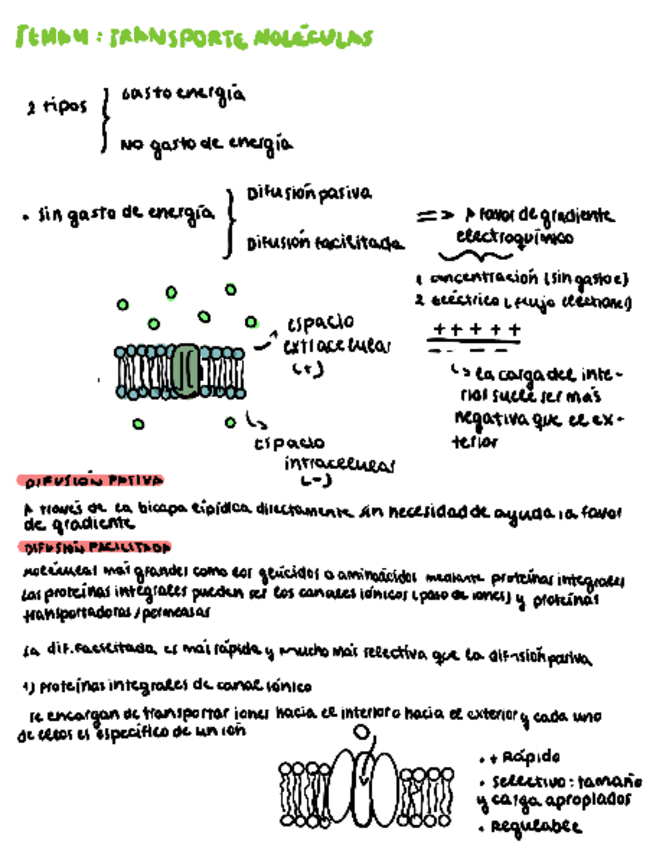 TEMA 4: TRANSPORTE MOLÉCULAS
2 tipos
Gasto energía
NO gasto de energía
• Sin gasto de energía
Difusión pasiva
Difusión facilitada
=> A favor de gradiente
electroquímico
1 concentración (sin gasto e)
2 eléctrico (flujo electrones)
+ + + + +
- - - - -
↳ La carga del inte-
rior suele ser más
negativa que el ex-
terior
espacio
extracelular
(+)
espacio
intracelular
(-)
DIFUSIÓN PASIVA
A través de la bicapa lipídica directamente sin necesidad de ayuda (a favor
de gradiente
DIFUSIÓN FACILITADA
Moléculas más grandes como los glúcidos o aminoácidos mediante proteínas integrales
Las proteínas integrales pueden ser los canales iónicos (paso de iones) y proteínas
transportadoras/permeasas
La dif. facilitada es más rápida y mucho más selectiva que la difusión pasiva
1) Proteínas integrales de canal iónico
Se encargan de transportar iones hacia el interior o hacia el exterior y cada uno
de ellos es específico de un ion
• + Rápido
• Selectivo: tamaño
y carga apropiados
• Regulable